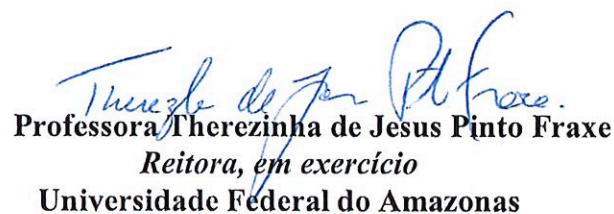 Therezinha de Jesus Pinto Fraxe.
Professora Therezinha de Jesus Pinto Fraxe
Reitora, em exercício
Universidade Federal do Amazonas